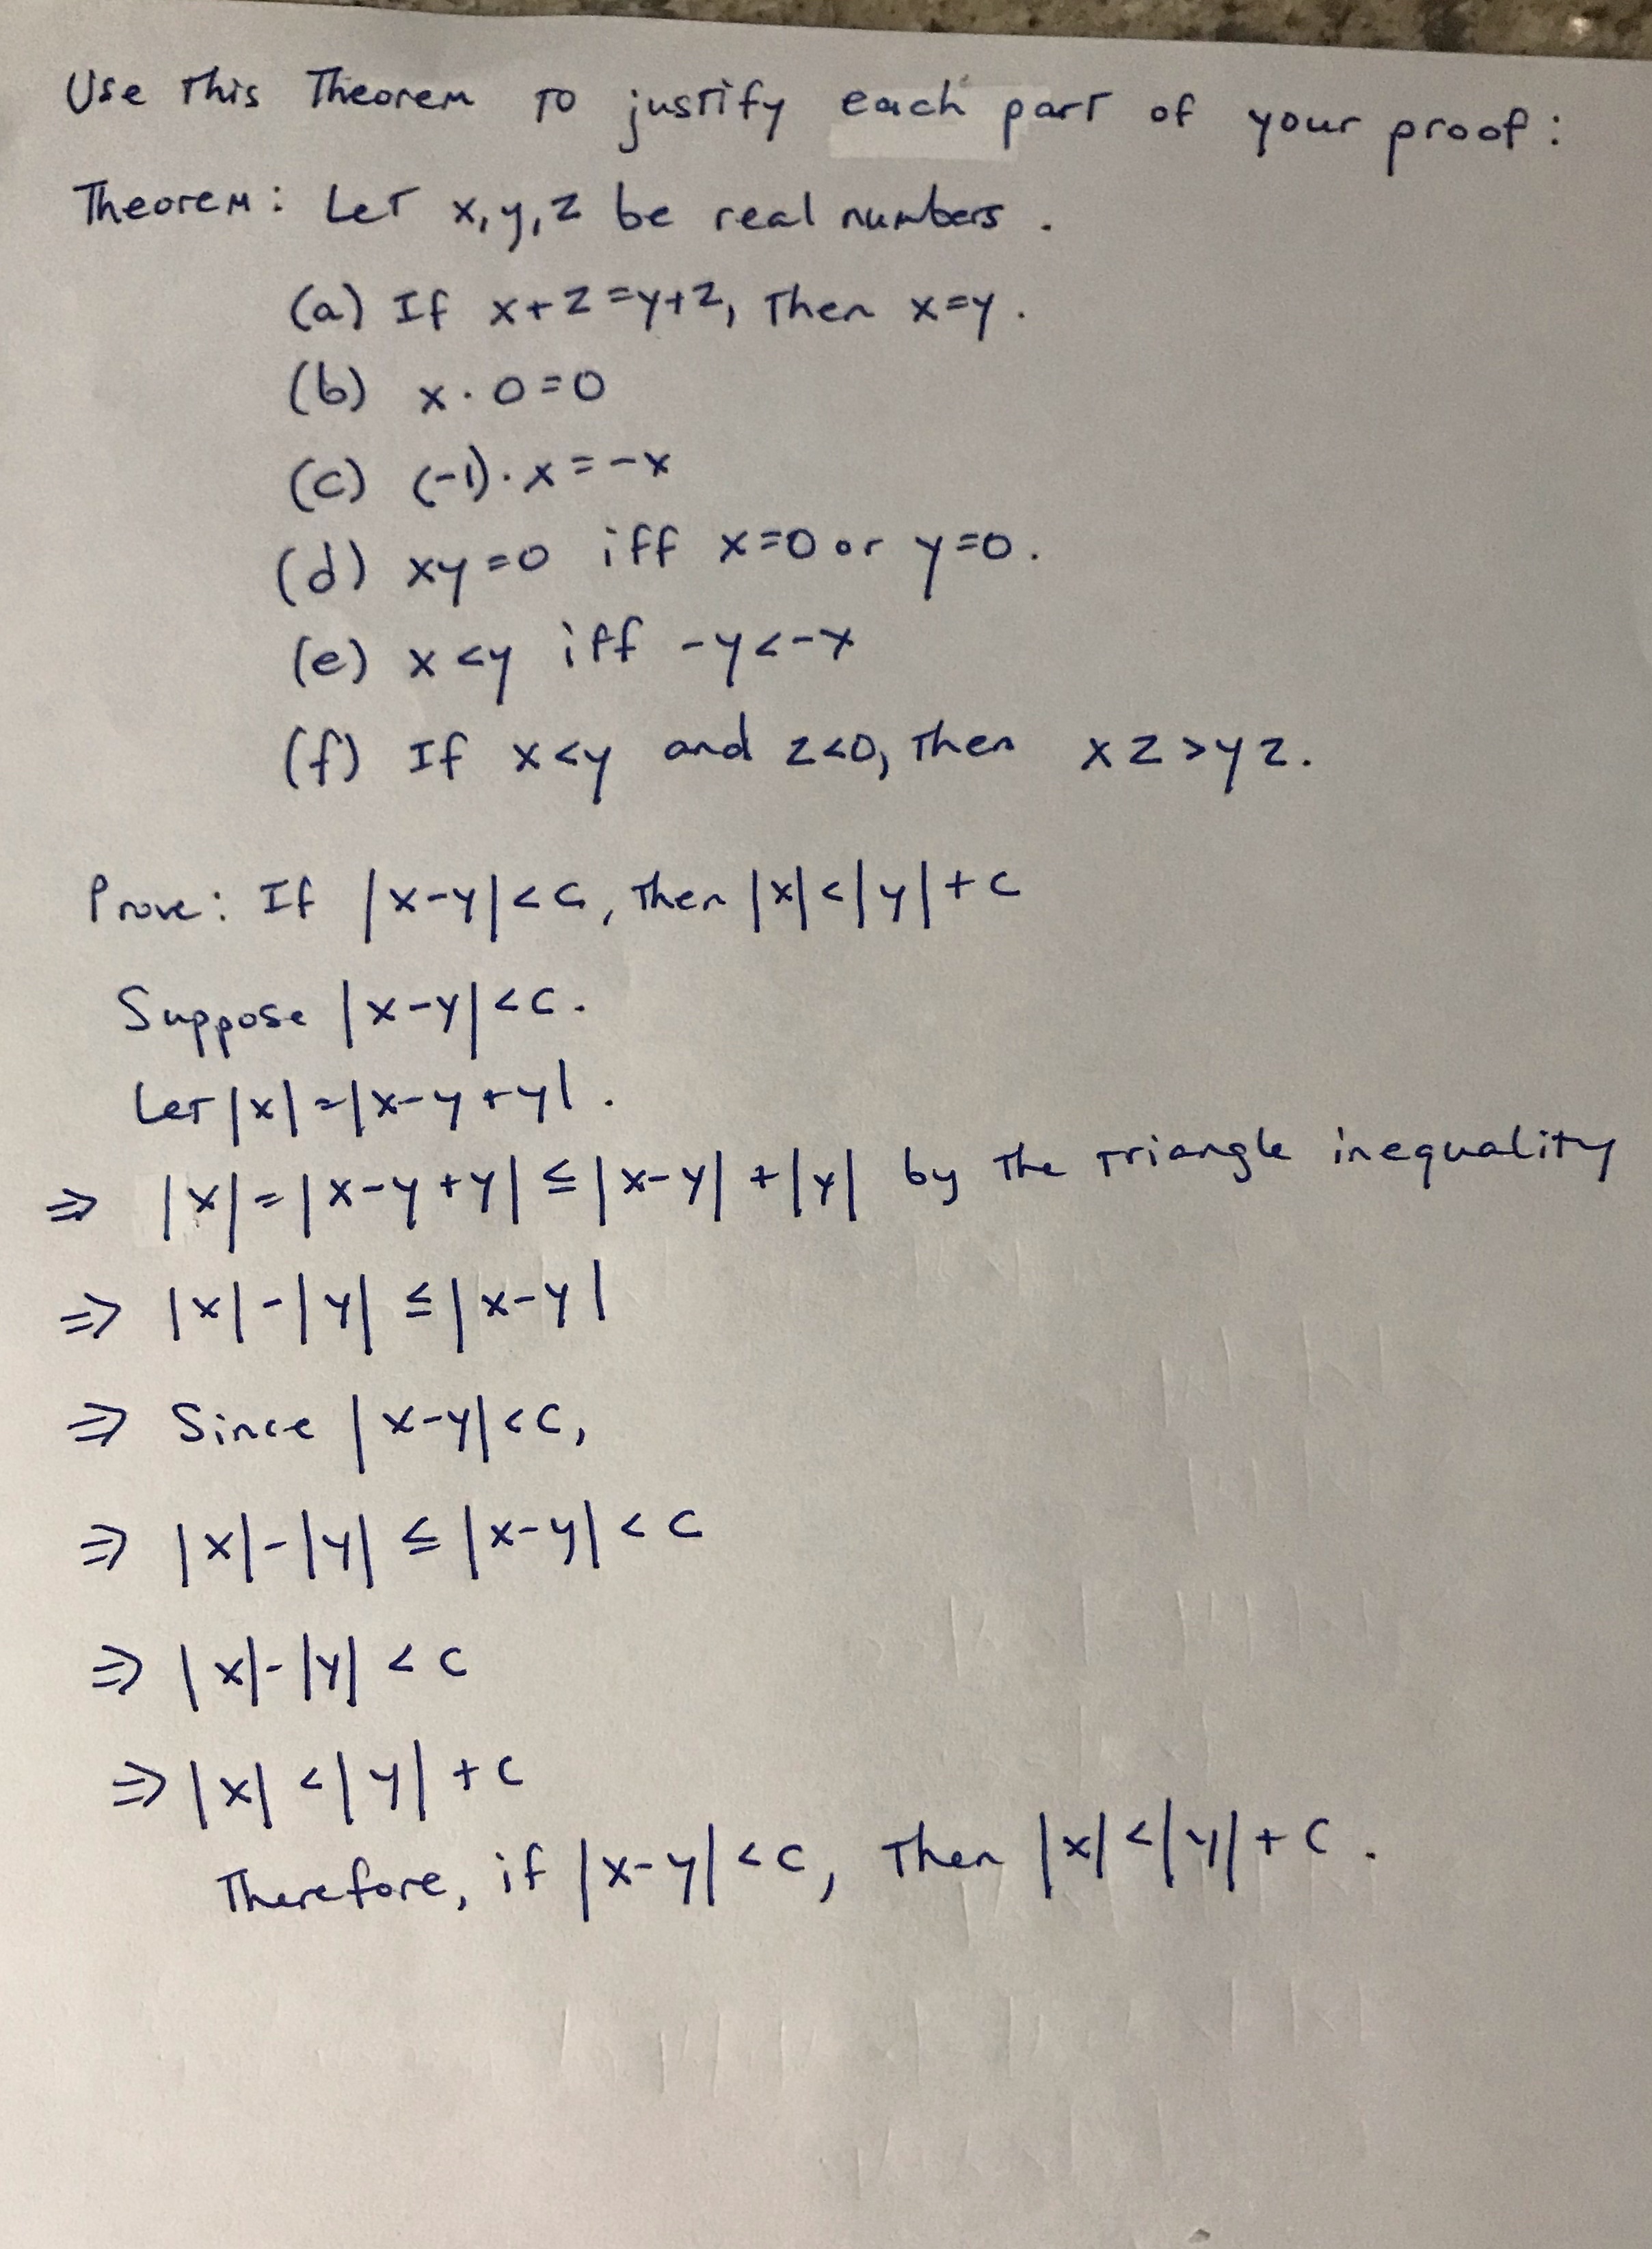 Use this Theorem to justify each part of your proof:
Theorem: Let x, y, z be real numbers.
(a) If x+z=y+z, then x=y.
(b) x·0=0
(c) (-1)·x=-x
(d) xy=0 iff x=0 or y=0.
(e) x<y iff -y<-x
(f) If x<y and z<0, then xz>yz.
Prove: If |x-y|<c, then |x|<|y|+c
Suppose |x-y|<c.
Let |x|=|x-y+y|.
⇒ |x|=|x-y+y|≤|x-y|+|y| by the triangle inequality
⇒ |x|-|y|≤|x-y|
⇒ Since |x-y|<c,
⇒ |x|-|y|≤|x-y|<c
⇒ |x|-|y|<c
⇒ |x|<|y|+c
Therefore, if |x-y|<c, then |x|<|y|+c.